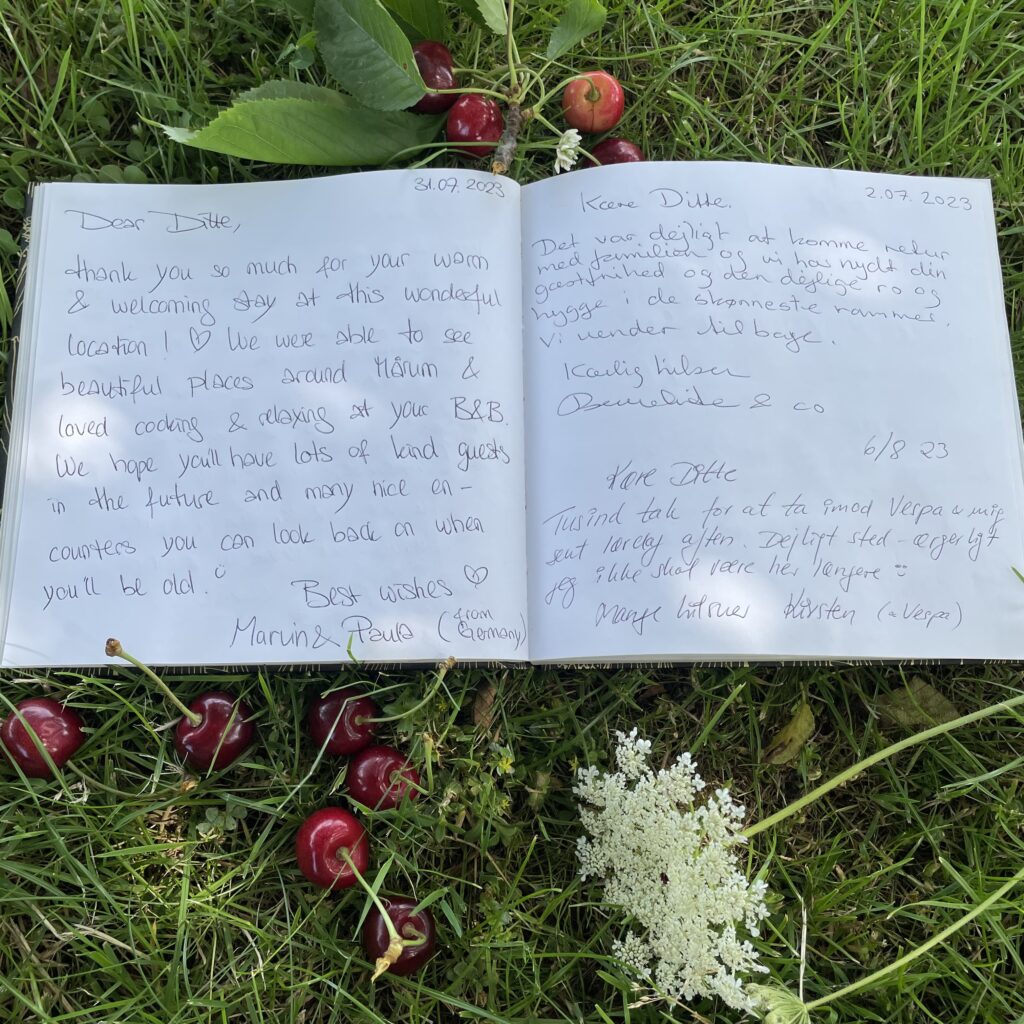 31.07.2023
Dear Ditte,
thank you so much for your warm
& welcoming stay at this wonderful
location! ♡ We were able to see
beautiful places around Mårum &
loved cooking & relaxing at your B&B.
We hope you'll have lots of kind guests
in the future and many nice en-
counters you can look back on when
you'll be old. ☺
Best wishes ♡
Marvin & Paula (from
Germany)
2.07.2023
Kære Ditte.
Det var dejligt at komme retur
med familien og vi har nydt din
gæstfrihed og den dejlige ro og
hygge i de skønneste rammer.
Vi vender tilbage.
Kærlig hilsen
& co
6/8 23
Kære Ditte
Tusind tak for at ta imod Vespa & mig
sent lørdag aften. Dejligt sted - ærgerligt
jeg ikke skal være her længere ☺
Mange hilsner Kirsten (& Vespa)